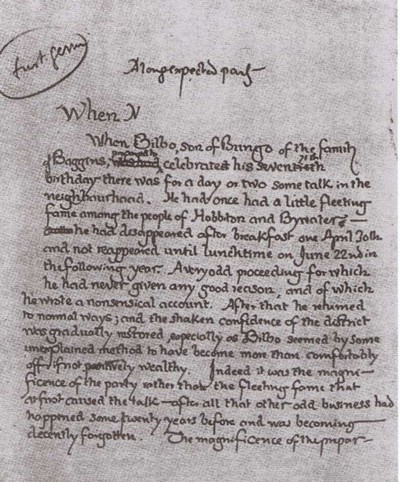 first germ
A long expected party
When N
When Bilbo, son of Bungo of the family
of Baggins, celebrated his seventieth
birthday there was for a day or two some talk in the
neighbourhood. He had once had a little fleeting
fame among the people of Hobbiton and Bywater —
he had disappeared after breakfast one April 30th
and not reappeared until lunchtime on June 22nd in
the following year. A very odd proceeding for which
he had never given any good reason, and of which
he wrote a nonsensical account. After that he returned
to normal ways; and the shaken confidence of the district
was gradually restored, especially as Bilbo seemed by some
unexplained method to have become more than comfortably
off, if not positively wealthy. Indeed it was the magni-
ficence of the party rather than the fleeting fame that
at first caused the talk — after all that other odd business had
happened some twenty years before and was becoming
decently forgotten. The magnificence of the